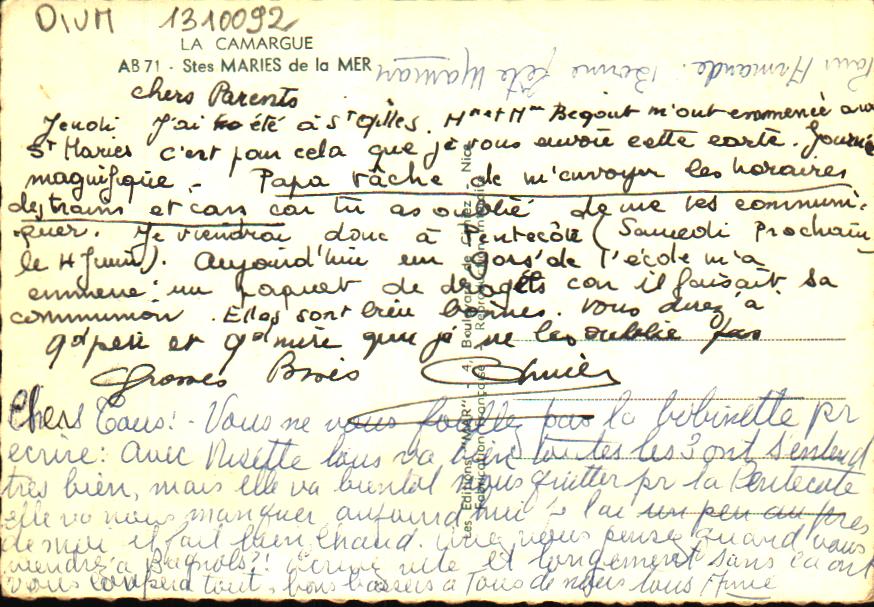 DIVM 1310092
LA CAMARGUE
AB 71 - Stes MARIES de la MER
Pour Armande. Bonne fête Maman
chers Parents
Jeudi J'ai été à St Gilles. Mr et Mme Begout m'ont emmenée aux
St Maries c'est pour cela que je vous envoie cette carte. Journée
magnifique - Papa tâche de m'envoyer les horaires
des trains et cars car tu as oublié de me les communi-
quer. Je viendrai donc à Pentecôte (Samedi Prochain
le 4 Juin). Aujourd'hui un gors de l'école m'a
emmené un paquet de dragéts car il faisait sa
communion. Elles sont bien bonnes. Vous direz à
gd père et gd mère que je ne les oublie pas
Grosses Bises
Chers Tous: - Vous ne vous foulez pas la bobinette pr
ecrire: Avec Nisette tous va bien toutes les 3 ont s'entend
très bien, mais elle va bientôt nous quitter pr la Pentecote
elle va nous manquer aujourd'hui je l'ai un peu au près
de moi il fait bien chaud. vous pense quand vous
viendrez à Bagnols?! Ecrive vite et longement sans ça ont
vous coupera tout, bons baisers a Tous de nous tous Aimé
Les Editions "MAR" - 4, Boulevard de - Nice
Fabrication Française Reproduction Interdite